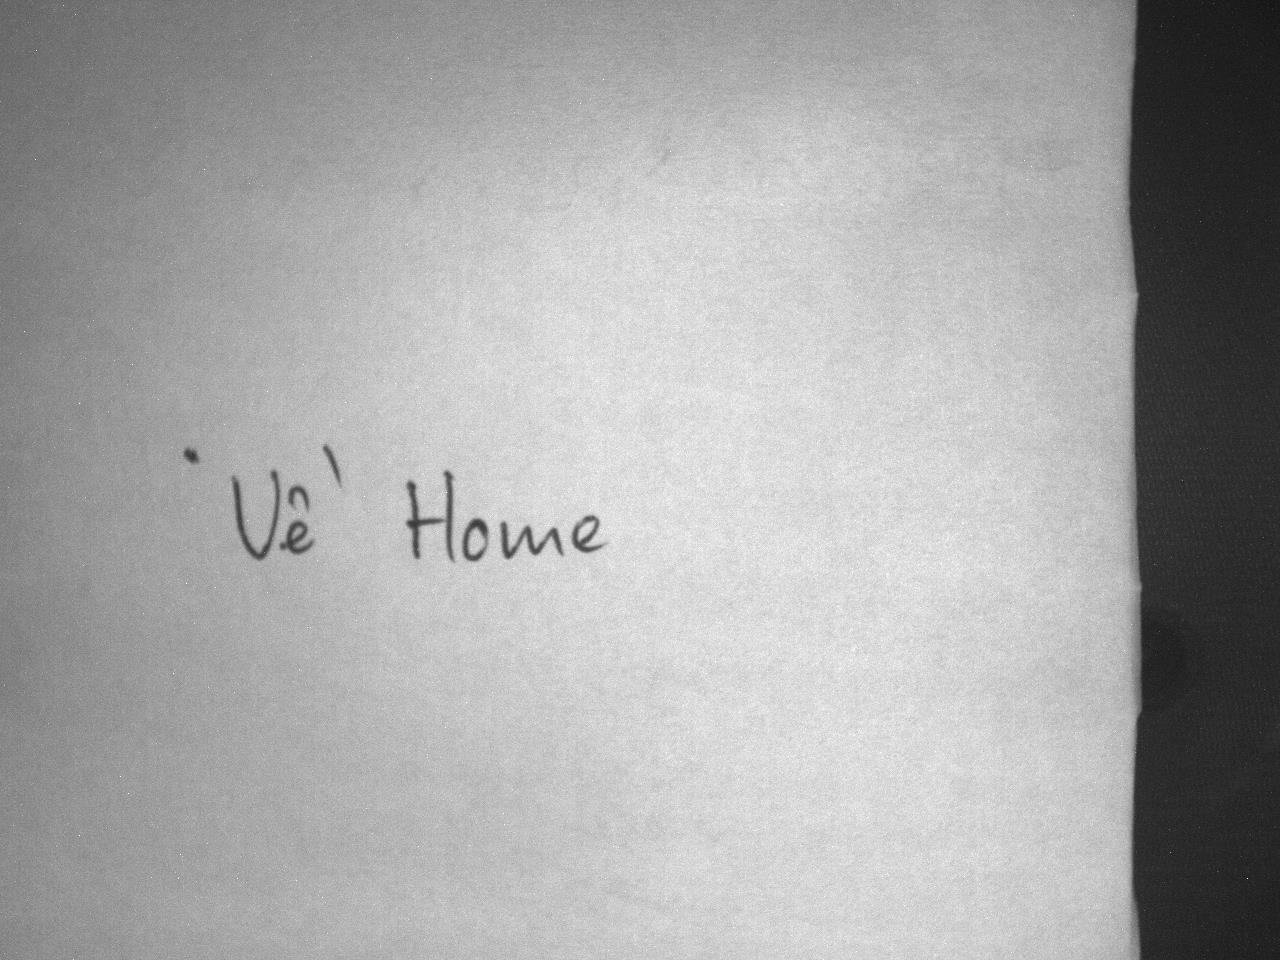 · Về Home